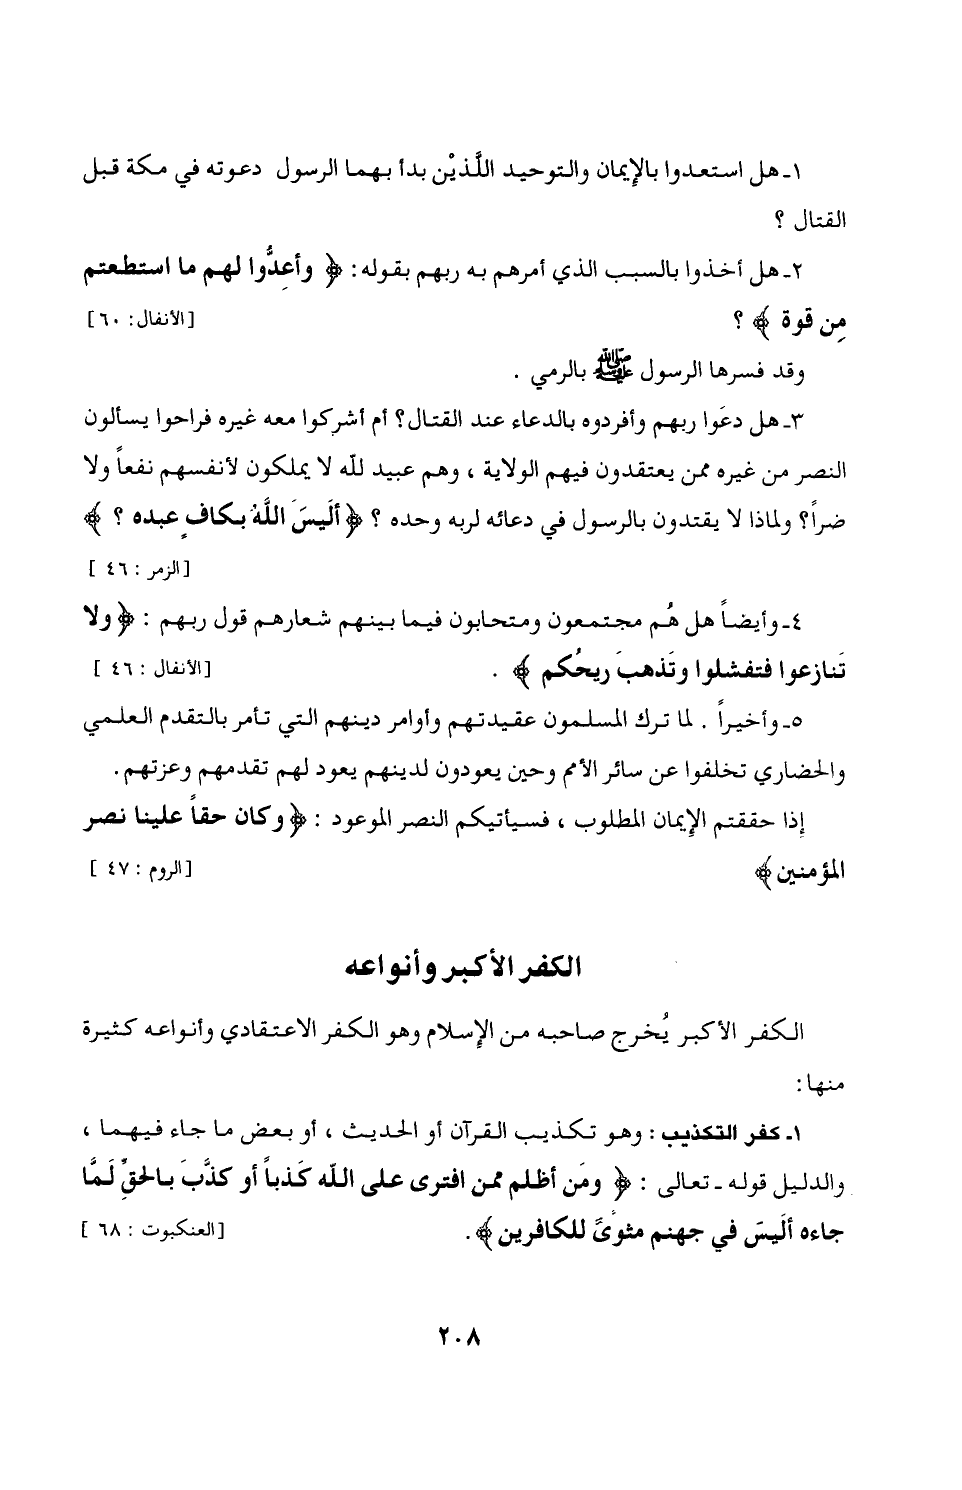 ١ـ هل استعدوا بالإيمان والتوحيد اللَّذيْن بدأ بهما الرسول دعوته في مكة قبل
القتال ؟
٢ـ هل أخذوا بالسبب الذي أمرهم به ربهم بقوله: ﴿ وأعِدُّوا لهم ما استطعتم
مِن قوة ﴾ ؟ [الأنفال: ٦٠]
وقد فسرها الرسول ﷺ بالرمي .
٣ـ هل دعَوا ربهم وأفردوه بالدعاء عند القتال؟ أم أشركوا معه غيره فراحوا يسألون
النصر من غيره ممن يعتقدون فيهم الولاية ، وهم عبيد لله لا يملكون لأنفسهم نفعاً ولا
ضراً؟ ولماذا لا يقتدون بالرسول في دعائه لربه وحده ؟ ﴿ أليسَ اللَّهُ بكافٍ عبده ؟ ﴾
[الزمر : ٤٦ ]
٤ـ وأيضاً هل هُم مجتمعون ومتحابون فيما بينهم شعارهم قول ربهم : ﴿ ولا
تَنازعوا فتفشلوا وتَذهبَ ريحُكم ﴾ . [الأنفال : ٤٦ ]
٥ـ وأخيراً . لما ترك المسلمون عقيدتهم وأوامر دينهم التي تأمر بالتقدم العلمي
والحضاري تخلفوا عن سائر الأمم وحين يعودون لدينهم يعود لهم تقدمهم وعزتهم .
إذا حققتم الإيمان المطلوب ، فسيأتيكم النصر الموعود : ﴿ وكان حقاً علينا نصر
المؤمنين ﴾ [الروم : ٤٧ ]
الكفر الأكبر وأنواعه
الكفر الأكبر يُخرج صاحبه من الإسلام وهو الكفر الاعتقادي وأنواعه كثيرة
منها :
١ـ كفر التكذيب : وهو تكذيب القرآن أو الحديث ، أو بعض ما جاء فيهما ،
والدليل قوله ـ تعالى : ﴿ ومَن أظلم ممن افترى على الله كَذباً أو كذَّبَ بالحقِّ لَمَّا
جاءه أليسَ في جهنم مثوىً للكافرين ﴾ . [العنكبوت : ٦٨ ]
٢٠٨